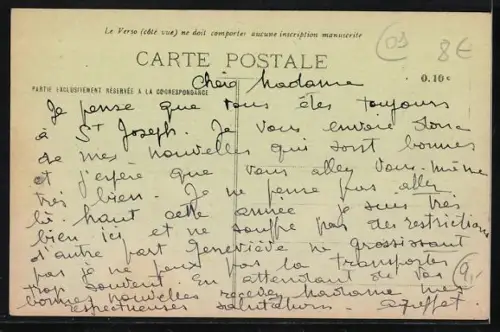 Le Verso (côté vue) ne doit comporter aucune inscription manuscrite
CARTE POSTALE
09
8€
0.10 c
PARTIE EXCLUSIVEMENT RÉSERVÉE A LA CORRESPONDANCE
Chère Madame
Je pense que vous êtes toujours
à St Joseph. Je vous envoie donc
de mes nouvelles qui sont bonnes
et j'espère que vous allez vous-même
très bien. Je ne pense pas aller
là-haut cette année je suis très
bien ici et ne souffre pas des restrictions
d'autre part Geneviève ne grossissant
pas je ne peux pas la transporter
trop souvent En attendant de vos
bonnes nouvelles recevez Madame mes
respectueuses salutations.
9,-